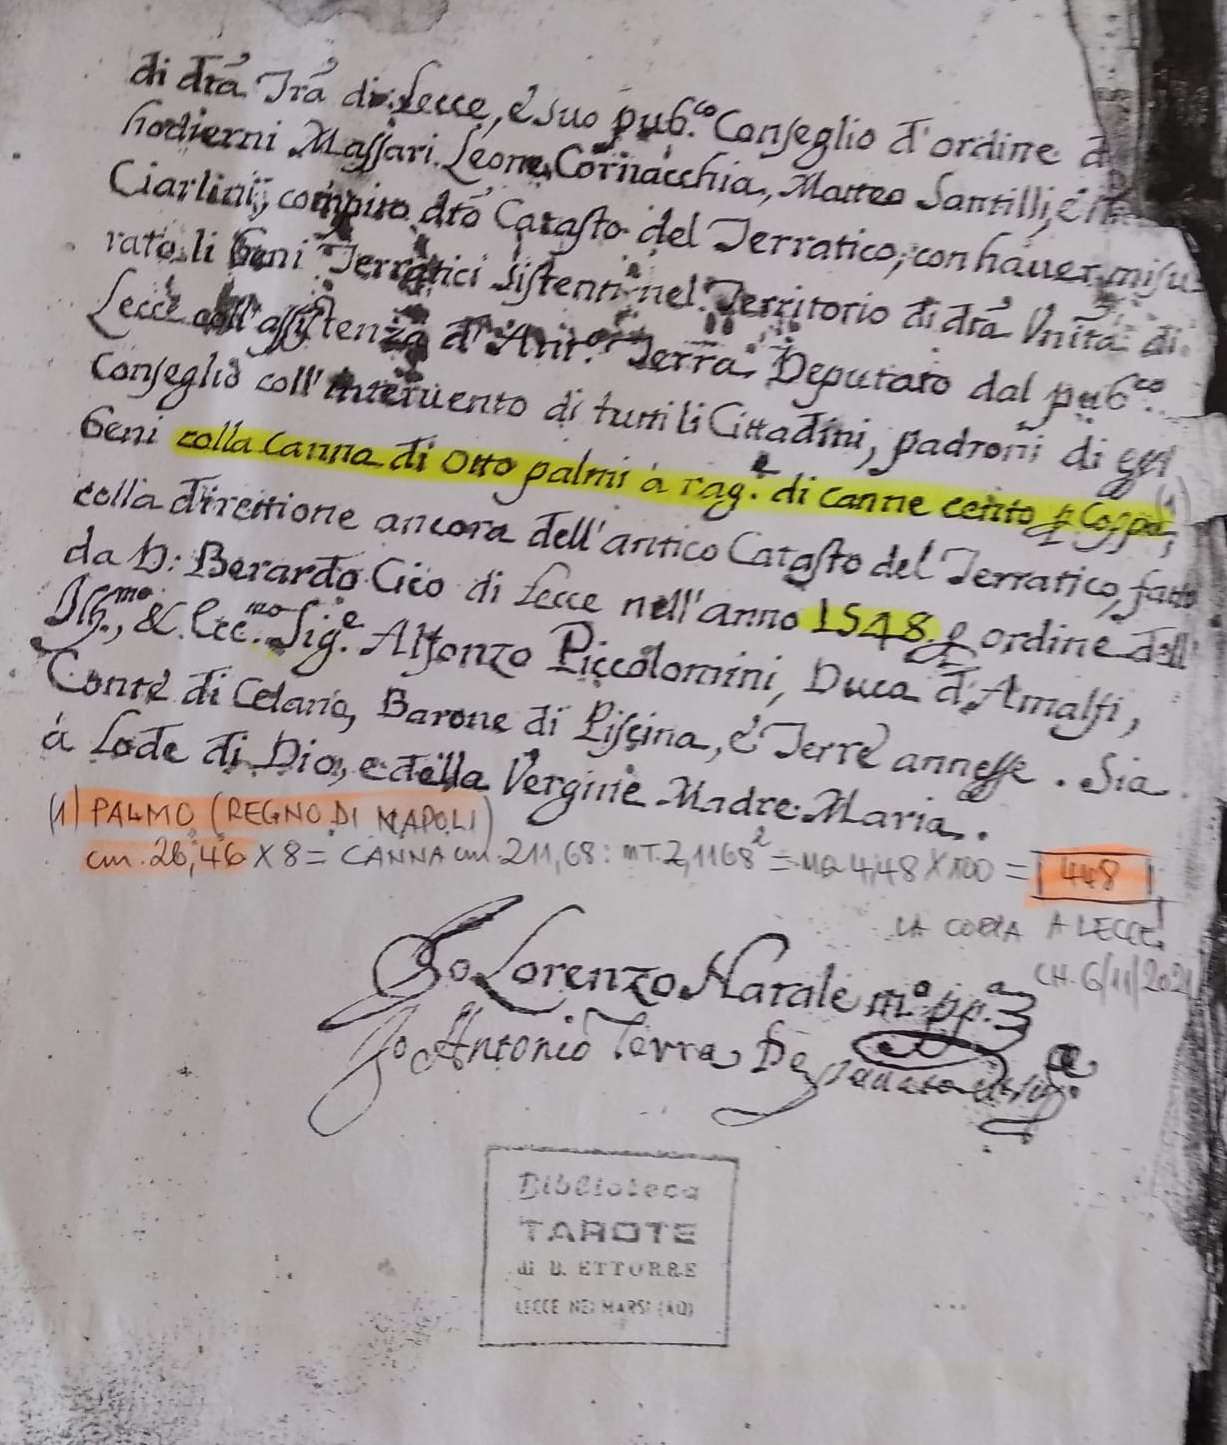 di dta Tra di Lecce, é suo pub.co Conseglio d'ordine
hodierni Massari Leone Cornacchia, Matteo Santilli, é
Ciarlini, compito dto Catasto del Terratico, con hauer misu
rato li beni Terratici sistenti nel Territorio di dta Vnita di
Lecce coll'assistenza d'Ant.o Terra Deputato dal pub.co
Conseglio coll'interuento di tutti li Cittadini, padroni di essi
beni colla Canna di otto palmi á rag.e di canne cento p Coppa, (1)
colla direttione ancora dell'antico Catasto del Terratico, fatto
da D: Berardo Cico di Lecce nell'anno 1548. p ordine dell'
Ill.mo, & Ecc.mo Sig.e Alfonzo Piccolomini, Duca d'Amalfi,
Conte di Celano, Barone di Piscina, é Terre annesse. Sia
á Lode di Dio, e della Vergine Madre Maria.
(1) PALMO (REGNO DI NAPOLI)
cm. 26,46 X 8 = CANNA cm. 211,68: MT. 2,1168² = MQ 4,48 X 100 = 448
LA COPPA A LECCE!
CH. 6/11/2021
Io Lorenzo Natale m.o pp.a
Io Antonio Terra Deputato
Biblioteca
TAROTE
di D. ETTORRE
LECCE NEI MARSI (AQ)